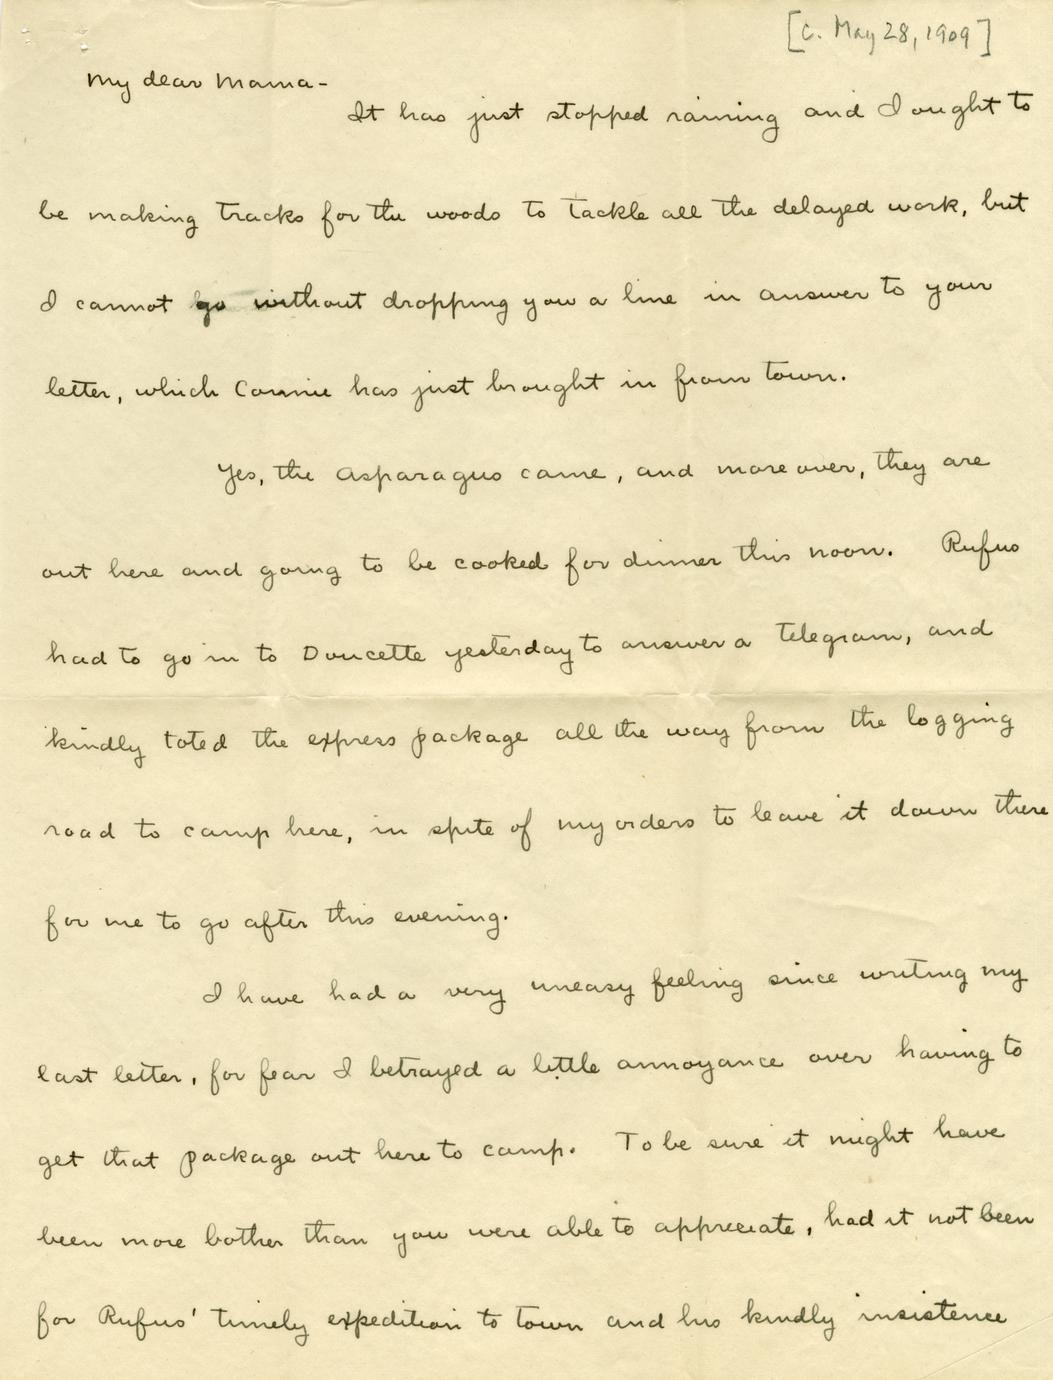 [c. May 28, 1909]
My dear Mama-
It has just stopped raining and I ought to
be making tracks for the woods to tackle all the delayed work, but
I cannot go without dropping you a line in answer to your
letter, which Connie has just brought in from town.
Yes, the asparagus came, and moreover, they are
out here and going to be cooked for dinner this noon. Rufus
had to go in to Doucette yesterday to answer a telegram, and
kindly toted the express package all the way from the logging
road to camp here, in spite of my orders to leave it down there
for me to go after this evening.
I have had a very uneasy feeling since writing my
last letter, for fear I betrayed a little annoyance over having to
get that package out here to camp. To be sure it might have
been more bother than you were able to appreciate, had it not been
for Rufus' timely expedition to town and his kindly insistence